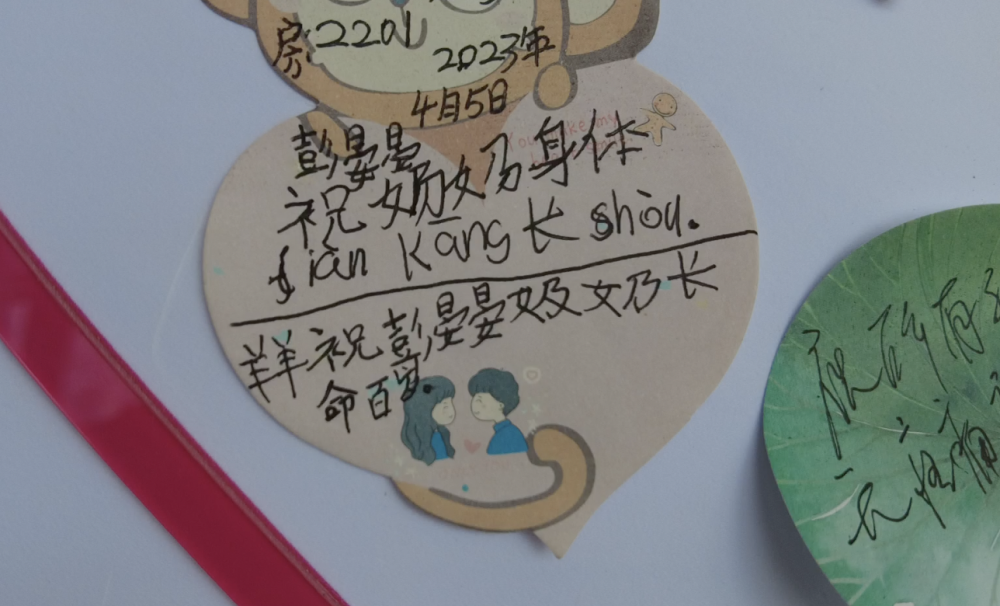 房:2201
2023年
4月5日
彭晏晏
祝奶奶身体
jiàn kāng长shòu.
羊羊祝彭晏晏奶奶长
命百岁。
祝所有